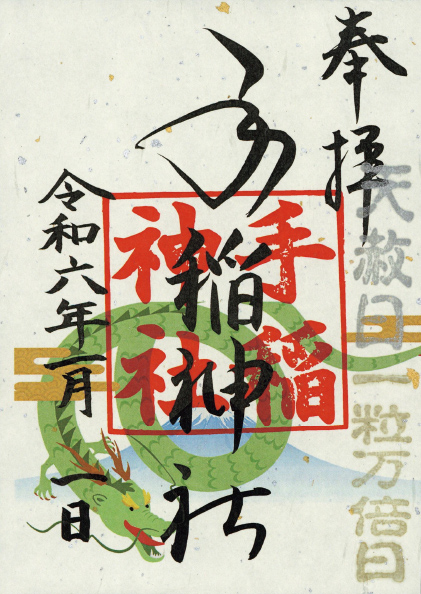 奉拝
天赦日一粒万倍日
手稲神社
手稲
神社
令和六年一月
一日